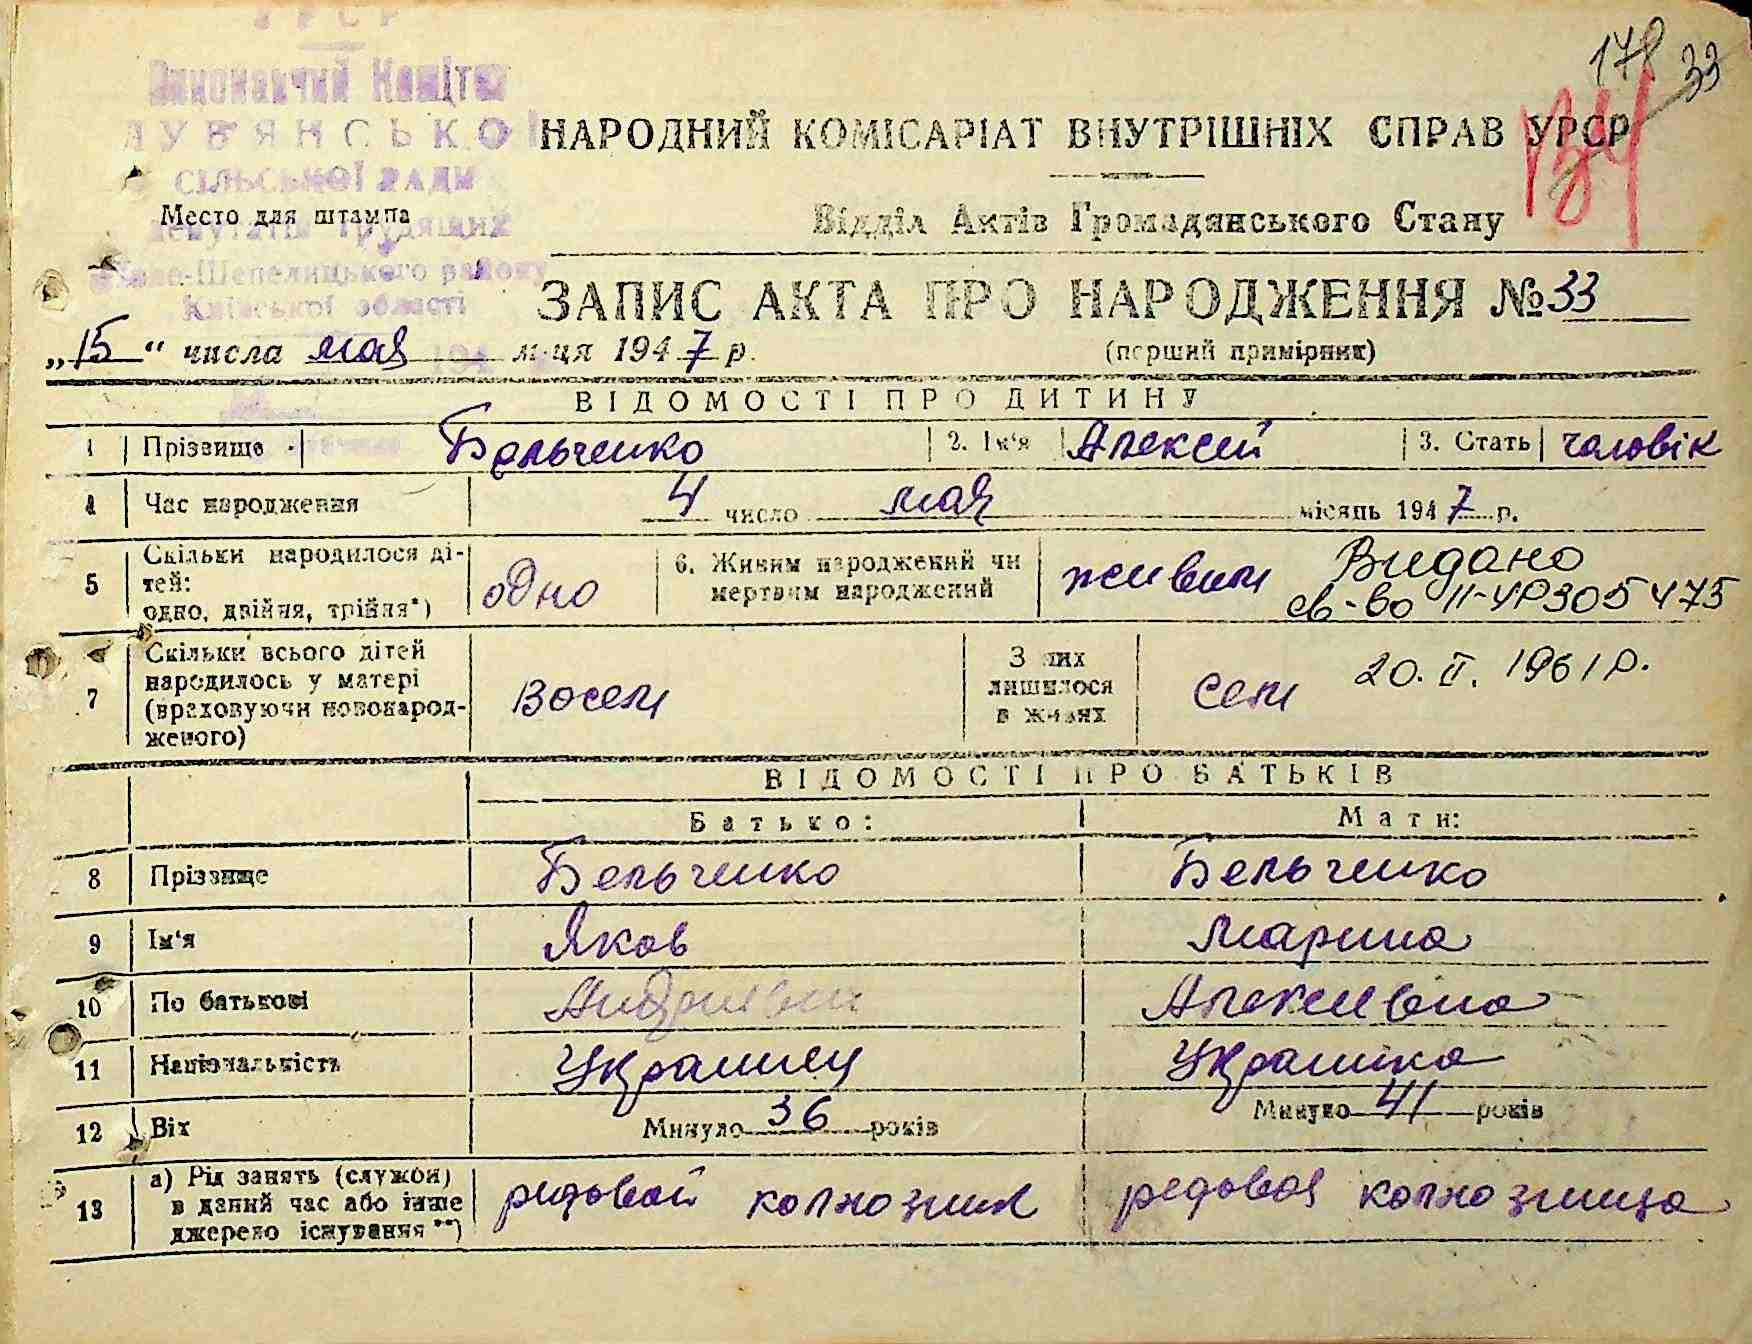 УРСР
Виконавчий Комітет
ЛУБ'ЯНСЬКОЇ
СІЛЬСЬКОЇ РАДИ
депутатів трудящих
Ново-Шепелицького району
Київської області
Место для штампа
178 33
НАРОДНИЙ КОМІСАРІАТ ВНУТРІШНІХ СПРАВ УРСР
Відділ Актів Громадянського Стану
ЗАПИС АКТА ПРО НАРОДЖЕННЯ № 33
„15“ числа мая м-ця 1947 р. (перший примірник)
ВІДОМОСТІ ПРО ДИТИНУ
1 Прізвище Бельченко 2. Ім‘я Алексей 3. Стать человік
4 Час народження 4 число мая місяць 1947 р.
5 Скільки народилося ді-
тей:
одно, двійня, трійня*) одно 6. Живим народжений чи
мертвим народжений живим Видано
св-во II-УР 305475
20.II.1961 р.
7 Скільки всього дітей
народилось у матері
(враховуючи новонарод-
женого) Восем З них
лишилося
в живих Сем
ВІДОМОСТІ ПРО БАТЬКІВ
Батько: Мати:
8 Прізвище Бельченко Бельченко
9 Ім‘я Яков Марина
10 По батькові Андриевич Алексевна
11 Національність Украинец Украинка
12 Вік Минуло 36 років Минуло 41 років
13 а) Рід занять (служби)
в даний час або інше
джерело існування **) редовой колхозник редовая колхозница